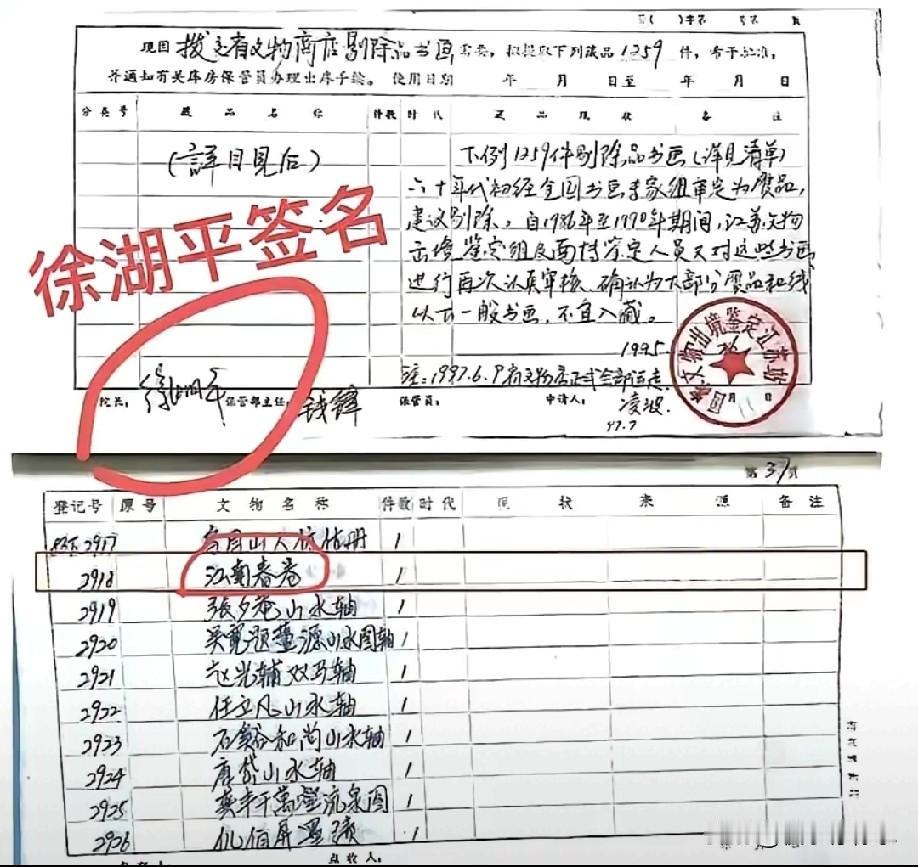 项目 拨交省文物商店剔除品书画 需要,拟提取下列藏品 1259 件,希予批准,
并通知有关库房保管员办理出库手续。 使用日期 年 月 日至 年 月 日
分类号 藏品名称 件数 时代 藏品现状 备注
(详目见后)
下列1259件剔除品书画(详见清单)
六十年代初经全国书画专家组审定为废品,
建议剔除。自1986年至1990年期间,江苏文物
出境鉴定组及面持鉴定人员又对这些书画
进行再次认真审核,确认为大部分废品和线
以下一般书画,不宜入藏。
1995
注:1997.6.9 省文物店正式全部运走
徐湖平签名
国家文物出境鉴定江苏站
院长: 徐湖平 保管部主任: 钱锋 保管员: 申请人: 凌波
97.7
第 37 页
登记号 原号 文物名称 件数 时代 现状 来源 备注
2917 1
2918 江南春卷 1
2919 张夕庵山水轴 1
2920 吴宽题董源山水图轴 1
2921 双马轴 1
2922 任立凡山水轴 1
2923 石谿和尚山水轴 1
2924 唐岱山水轴 1
2925 龚半千万壑流泉图 1
2926 1
点收人: